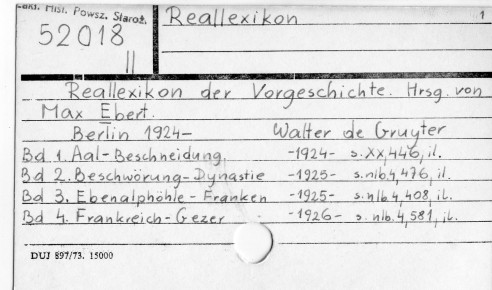 Zakł. Hist. Powsz. Staroż.
52018
II
Reallexikon 1
Reallexikon der Vorgeschichte. Hrsg. von
Max Ebert.
Berlin 1924- Walter de Gruyter
Bd 1. Aal-Beschneidung, -1924- s. XX, 446, il.
Bd 2. Beschwörung-Dynastie -1925- s. nlb. 4, 476, il.
Bd 3. Ebenalphöhle - Franken -1925- s. nlb. 4, 408, il.
Bd 4. Frankreich-Gezer -1926- s. nlb. 4, 581, il.
DUJ 897/73. 15000